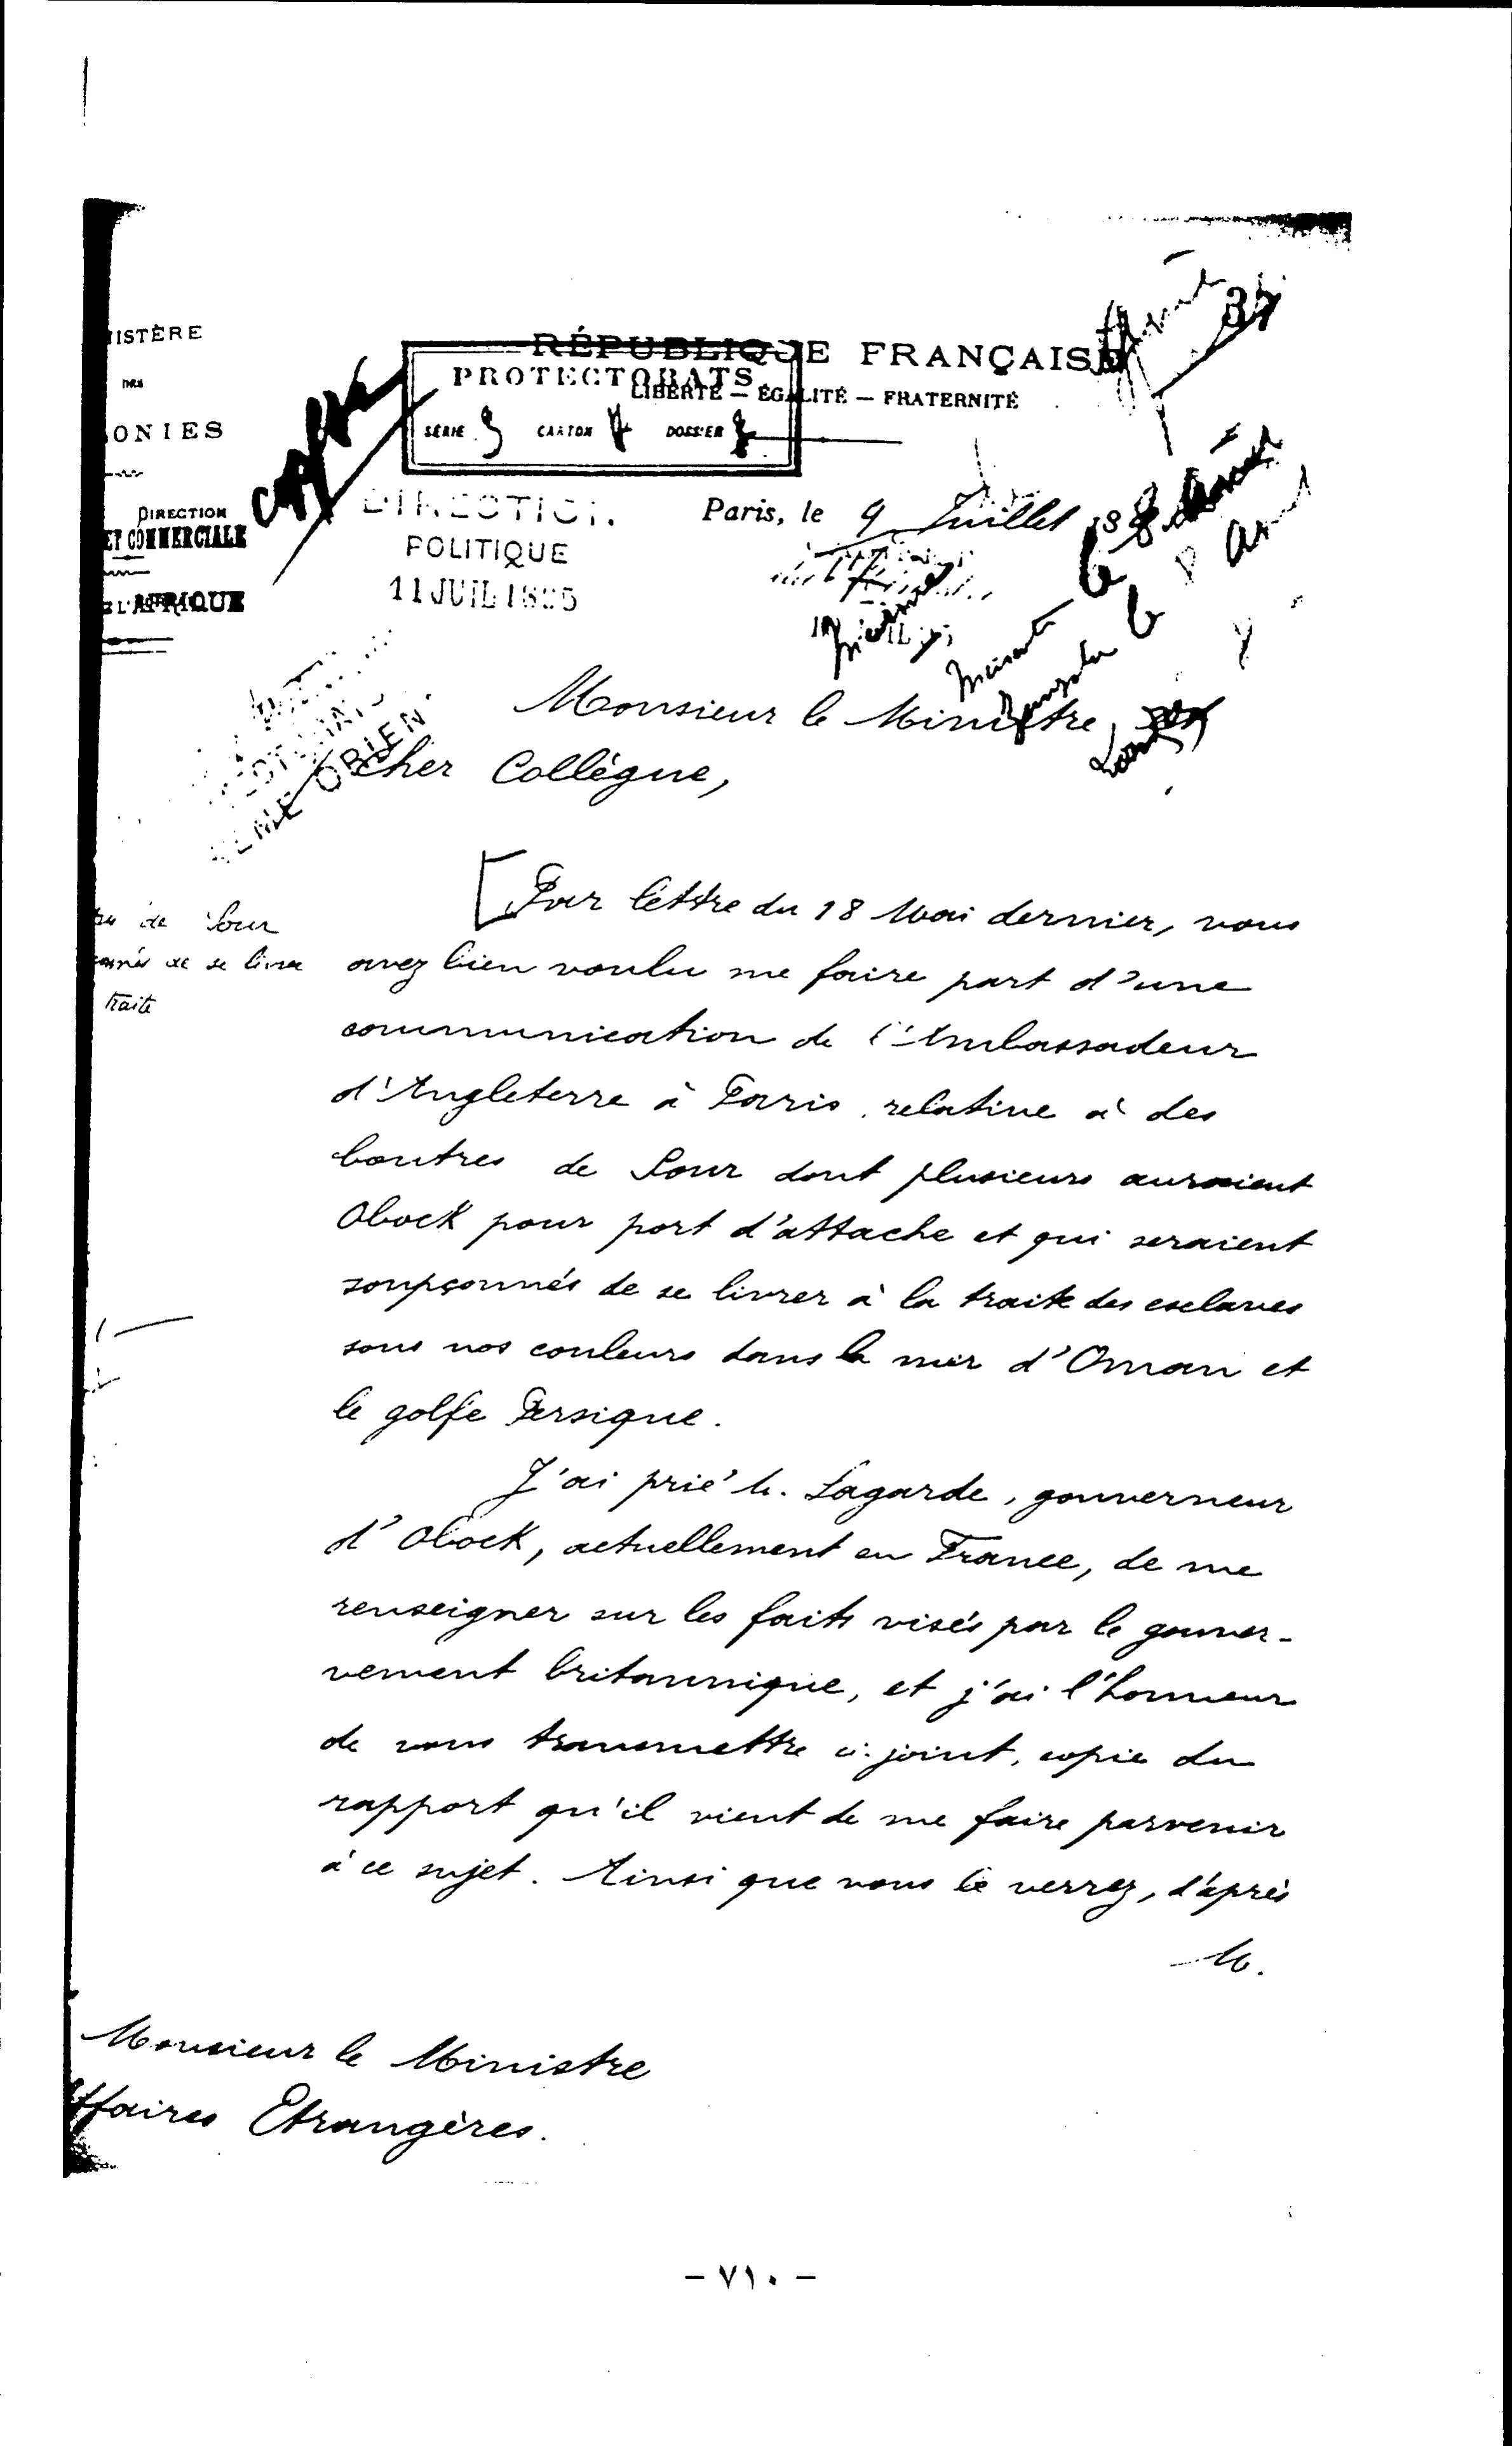 ISTÈRE
DES
ONIES
DIRECTION
ET COMMERCIALE
L'AFRIQUE
RÉPUBLIQUE FRANÇAISE
LIBERTÉ — ÉGALITÉ — FRATERNITÉ
PROTECTORATS
SÉRIE CARTON DOSSIER
DIRECTION
POLITIQUE
11 JUIL 1895
Paris, le 9 Juillet 18
Monsieur le Ministre
et cher Collègue,
de Sour
de se livrer
traite
[Par lettre du 18 Mai dernier, vous
avez bien voulu me faire part d'une
communication de l'Ambassadeur
d'Angleterre à Paris, relative à des
boutres de Sour dont plusieurs auraient
Obock pour port d'attache et qui seraient
soupçonnés de se livrer à la traite des esclaves
sous nos couleurs dans la mer d'Oman et
le golfe Persique.
J'ai prié M. Lagarde, gouverneur
d'Obock, actuellement en France, de me
renseigner sur les faits visés par le gouver-
nement britannique, et j'ai l'honneur
de vous transmettre ci-joint, copie du
rapport qu'il vient de me faire parvenir
à ce sujet. Ainsi que vous le verrez, d'après
M.
Monsieur le Ministre
ffaires Etrangères.
– ٧١٠ –